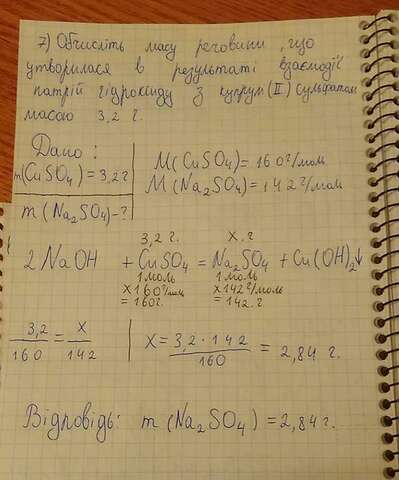 7) Обчисліть масу речовини, що
утворилася в результаті взаємодії
натрій гідроксиду з купрум (II) сульфатом
масою 3,2 г.
Дано:
m(CuSO₄) = 3,2 г
m(Na₂SO₄) - ?
M(CuSO₄) = 160 г/моль
M(Na₂SO₄) = 142 г/моль
3,2 г. x. г
2NaOH + CuSO₄ = Na₂SO₄ + Cu(OH)₂↓
1 моль 1 моль
x160 г/моль x142 г/моль
= 160 г. = 142. г
3,2/160 = x/142
x = 3,2 · 142/160 = 2,84 г.
Відповідь: m(Na₂SO₄) = 2,84 г.